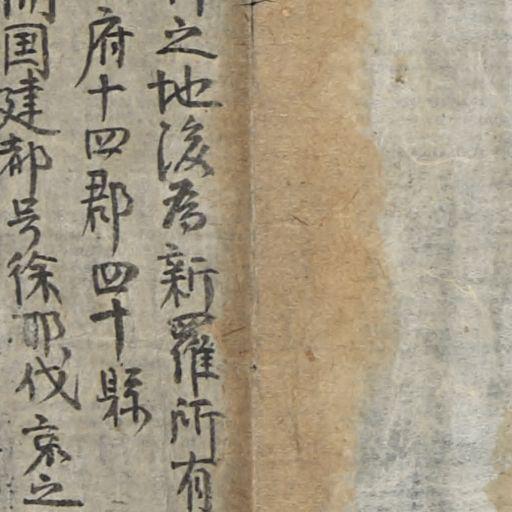 之地後為新羅所有
府十四郡四十縣
開国建都号徐耶伐哀之